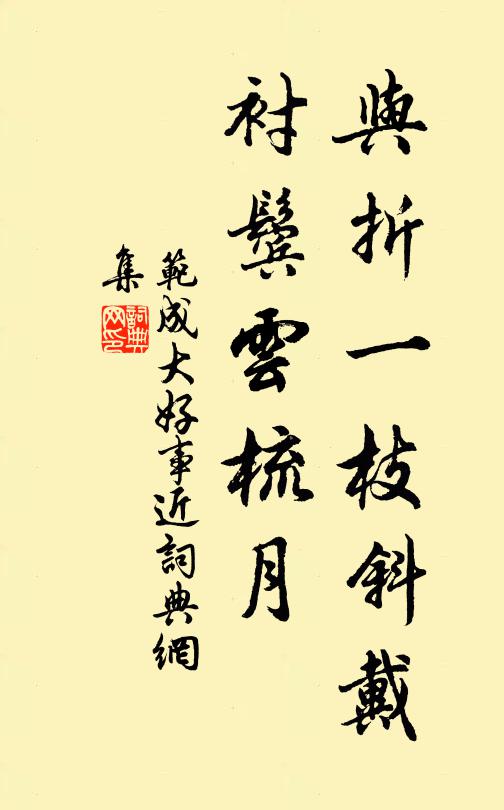 與折一枝斜戴
衬鬓雲梳月
範成大好事近詞典網
集
詞典
网印